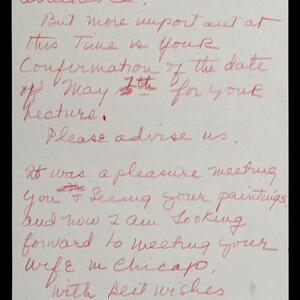 But more important at
this Time is your
Confirmation of the date
of May 7th for your
lecture.
Please advise us.
It was a pleasure meeting
you + seeing your paintings,
and now I am looking
forward to meeting your
wife in Chicago.
With best wishes